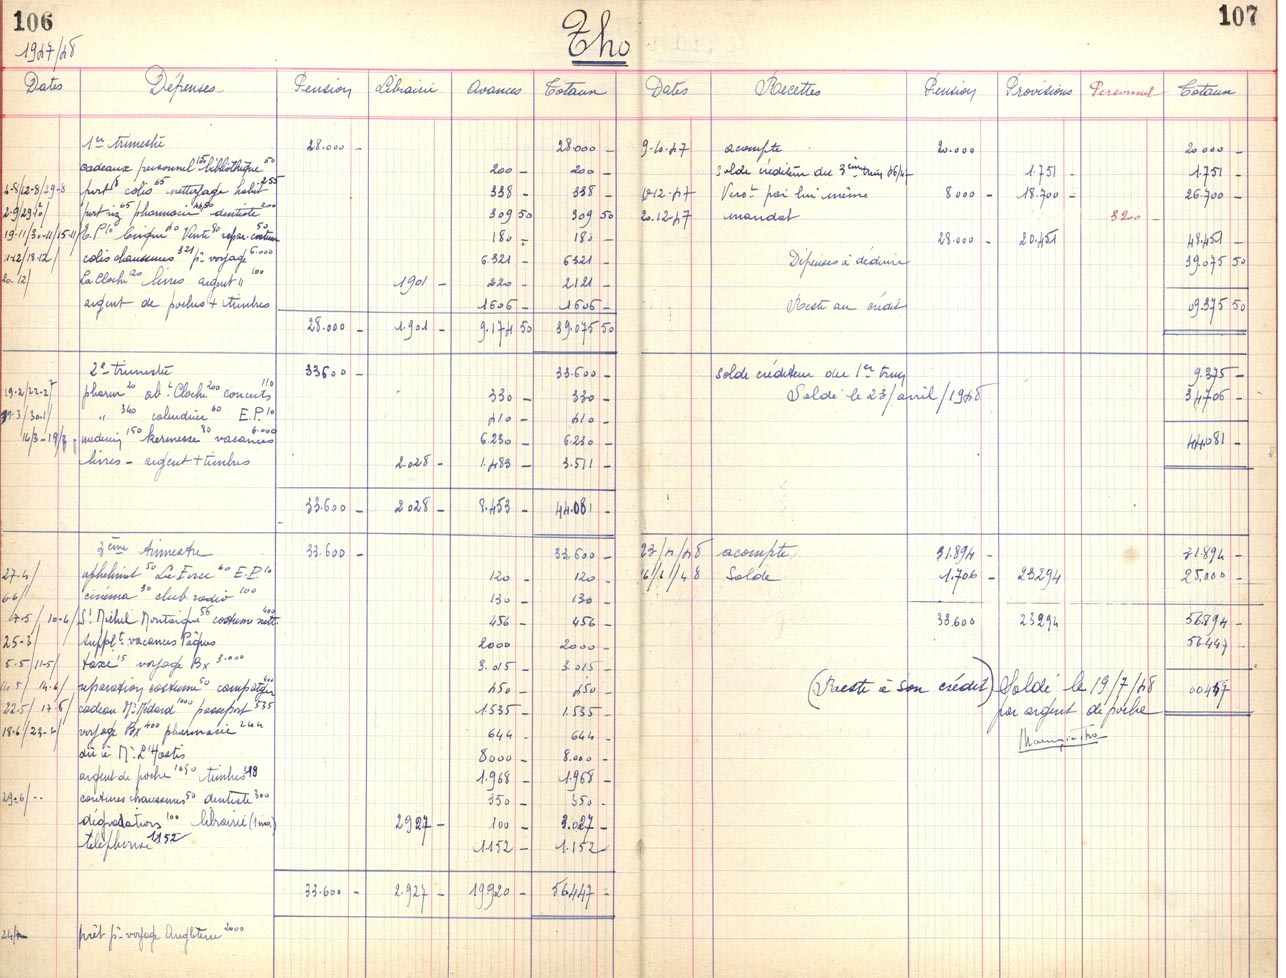 106
1947/48
Tho
107
Dates Dépenses Pension Librairie Avances Totaux
1er trimestre 28.000 – 28.000 –
cadeaux personnel 150 bibliothèque 50 200 – 200 –
4-8/12-8/29-8 port 8 colis 65 nettoyage habit 255 338 – 338 –
port riz 65 pharmacie dentiste 200 309 50 309 50
19-11/30-11/15-11 E.P. 10 Vente 80 repar. costume 50 180 – 180 –
11-12/18-12/ colis chaussures 321 pr voyage 6.000 6.321 – 6321 –
20.12/ La Cloche 120 livres argent " 100 1901 – 220 – 2121 –
argent de poches + timbres 1606 – 1606 –
28.000 – 1.901 – 9.174 50 39.075 50
2e trimestre 33600 – 33.600 –
pharm 20 ab.t Cloche 200 concerts 110 330 – 330 –
" 340 calendrier 60 E.P. 10 410 – 410 –
14/3 – 19/3 150 kermesse 80 vacances 6.000 6.230 – 6.230 –
livres – argent + timbres 2.028 – 1.483 – 3.511 –
33.600 – 2028 – 8.453 – 44.081 –
3ème trimestre 33.600 – 33.600 –
27-4/ 50 La Force 60 E.P. 10 120 – 120 –
6-6/ cinéma 30 club radio 100 130 – 130 –
17-5/ 10-4/ St Michel Montaigne 56 costume nett 400 456 – 456 –
25-3/ supplt vacances Pâques 2000 – 2000 –
5-5/ 11-5/ taxi 15 voyage Bx 3.000 3.015 – 3.015 –
14.5/ 14.6/ réparation costume 50 400 450 – 450 –
22.5/ 17-6/ cadeau Mr Médard 1000 passeport 535 1.535 – 1.535 –
voyage Bx 400 pharmacie 244 644 – 644 –
dû à Mr L'Hostis 8000 – 8.000 –
argent de poche 1650 timbres 318 1.968 – 1.968 –
29-6/ -- coutures chaussures 50 dentiste 300 350 – 350 –
dégradations 100 librairie (1 mo.) 2927 – 100 – 3.027 –
téléphone 1152 1152 – 1.152 –
33.600 – 2.927 – 19920 – 56447 –
prêt pr voyage Angleterre 2000
Dates Recettes Pension Provisions Personnel Totaux
9-10-47 acompte 20.000 20.000 –
solde créditeur du 3ème trim 46/47 1.751 – 1.751 –
Verst par lui même 8000 – 18.700 – 26.700 –
20.12-47 mandat 320 –
28.000 – 20.451 48.451 –
Dépenses à déduire 39.075 50
Reste au crédit 09.375 50
solde créditeur du 1er trim 9.375 –
Soldé le 23/avril/1948 34706 –
44081 –
23/4/48 acompte 31.894 – 31.894 –
Solde 1.706 – 23294 25.000 –
33.600 – 23294 56894 –
56447 –
(Reste à son crédit) Soldé le 19/7/48 00447 –
par argent de poche